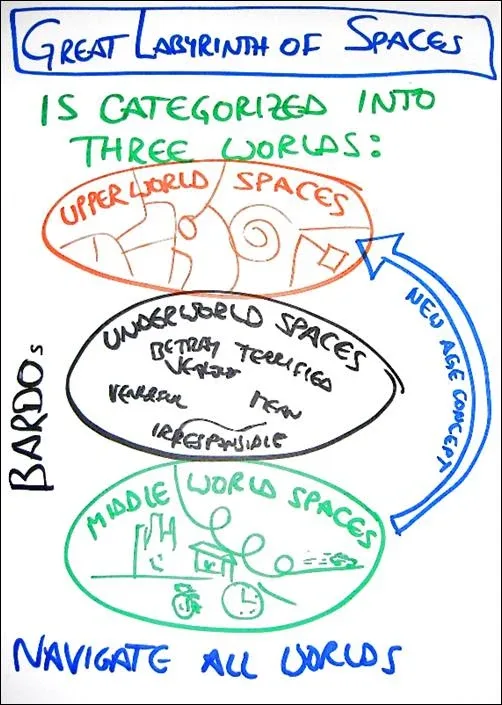 GREAT LABYRINTH OF SPACES
IS CATEGORIZED INTO
THREE WORLDS:
UPPERWORLD SPACES
NEW AGE CONCEPT
BARDOs
UNDERWORLD SPACES
BETRAY TERRIFIED
MEAN
IRRESPONSIBLE
MIDDLE WORLD SPACES
NAVIGATE ALL WORLDS